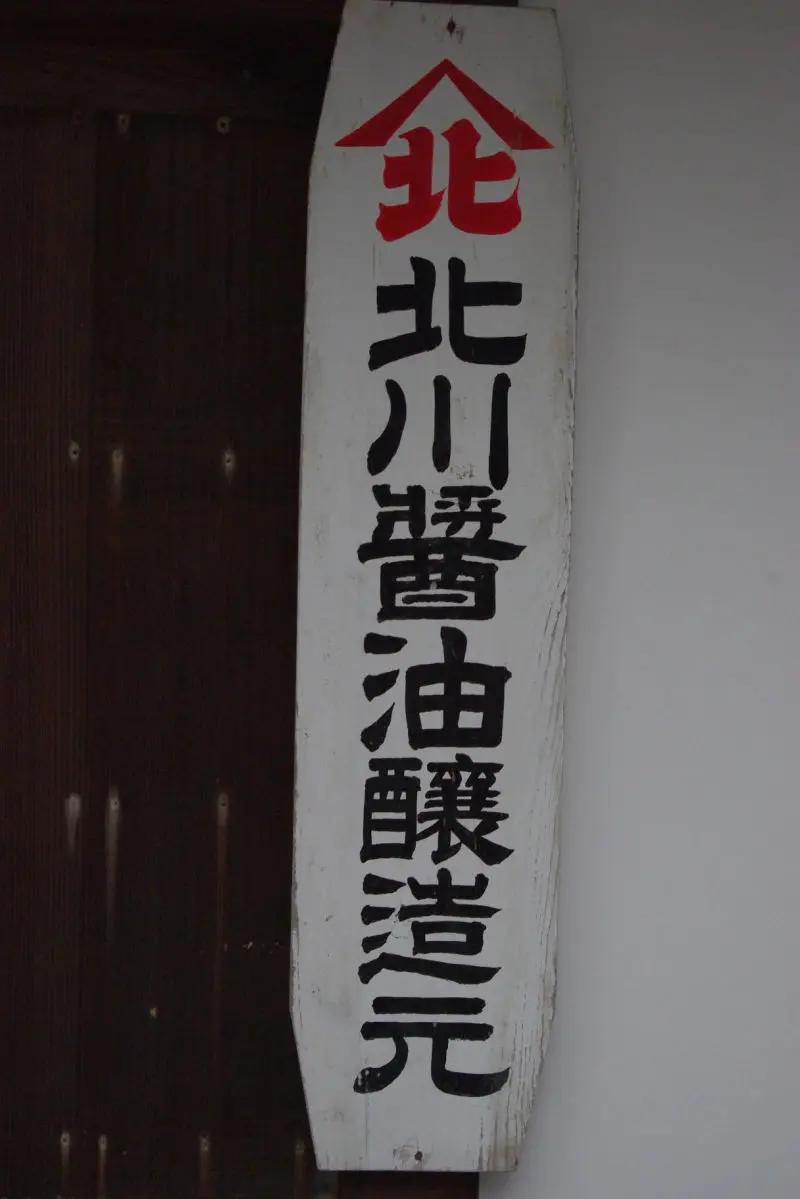 北
北川醤油醸造元